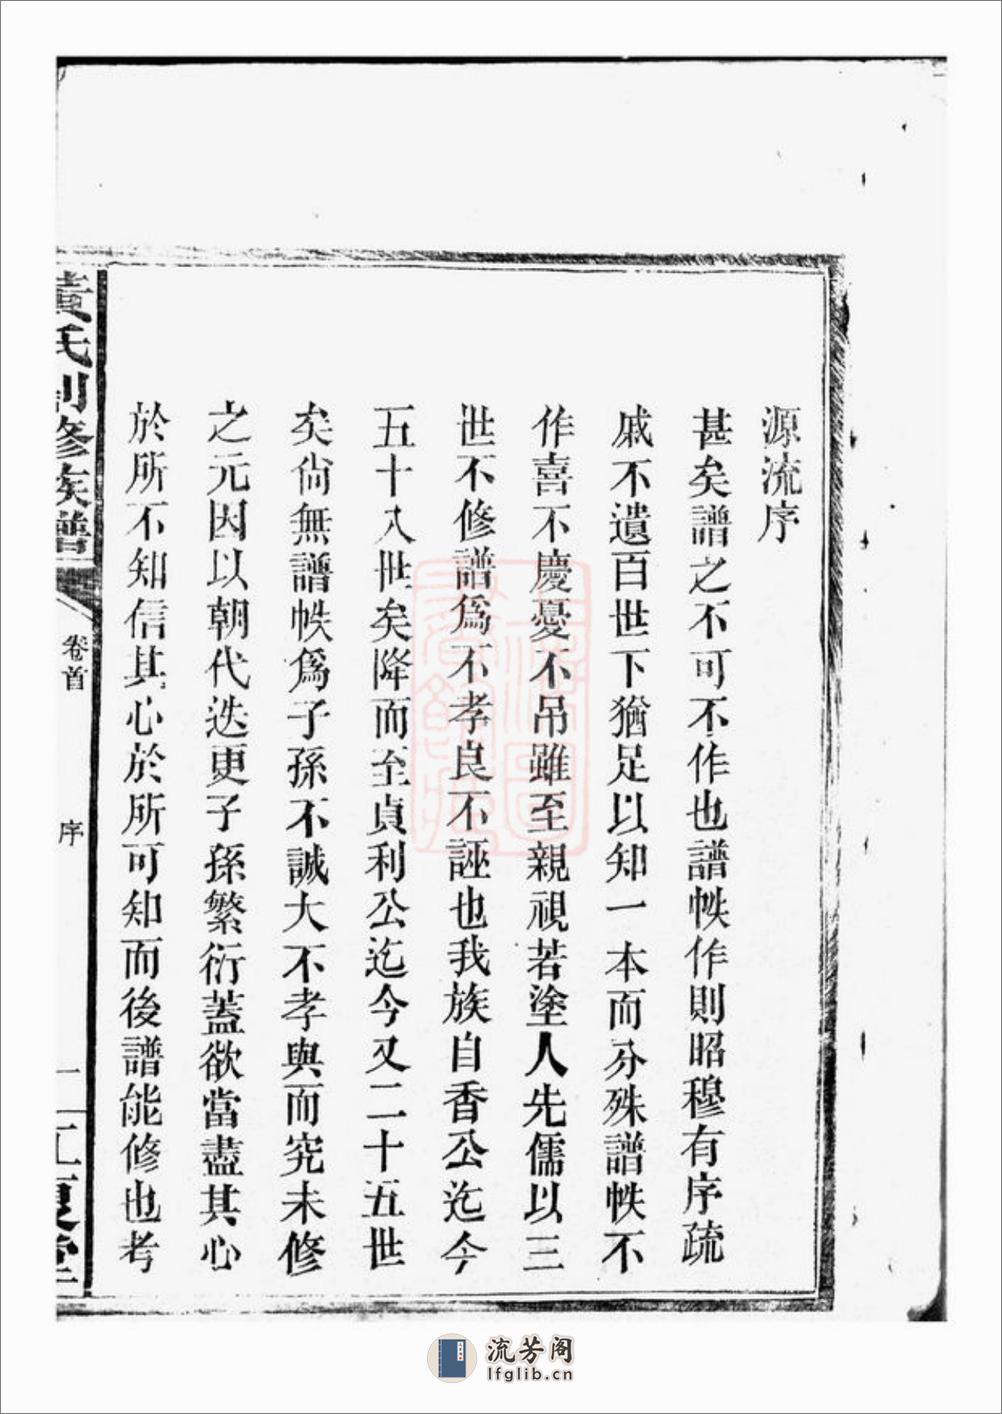 源流序
甚矣譜之不可不作也譜帙作則昭穆有序疏
戚不遺百世下猶足以知一本而分殊譜帙不
作喜不慶憂不吊雖至親視若塗人先儒以三
世不修譜爲不孝良不誣也我族自香公迄今
五十八世矣降而至貞利公迄今又二十五世
矣尙無譜帙爲子孫不誠大不孝與而究未修
之元因以朝代迭更子孫繁衍蓋欲當盡其心
於所不知信其心於所可知而後譜能修也考
黃氏創修族譜
卷首
序
一
江夏堂
流芳阁
lfglib.cn